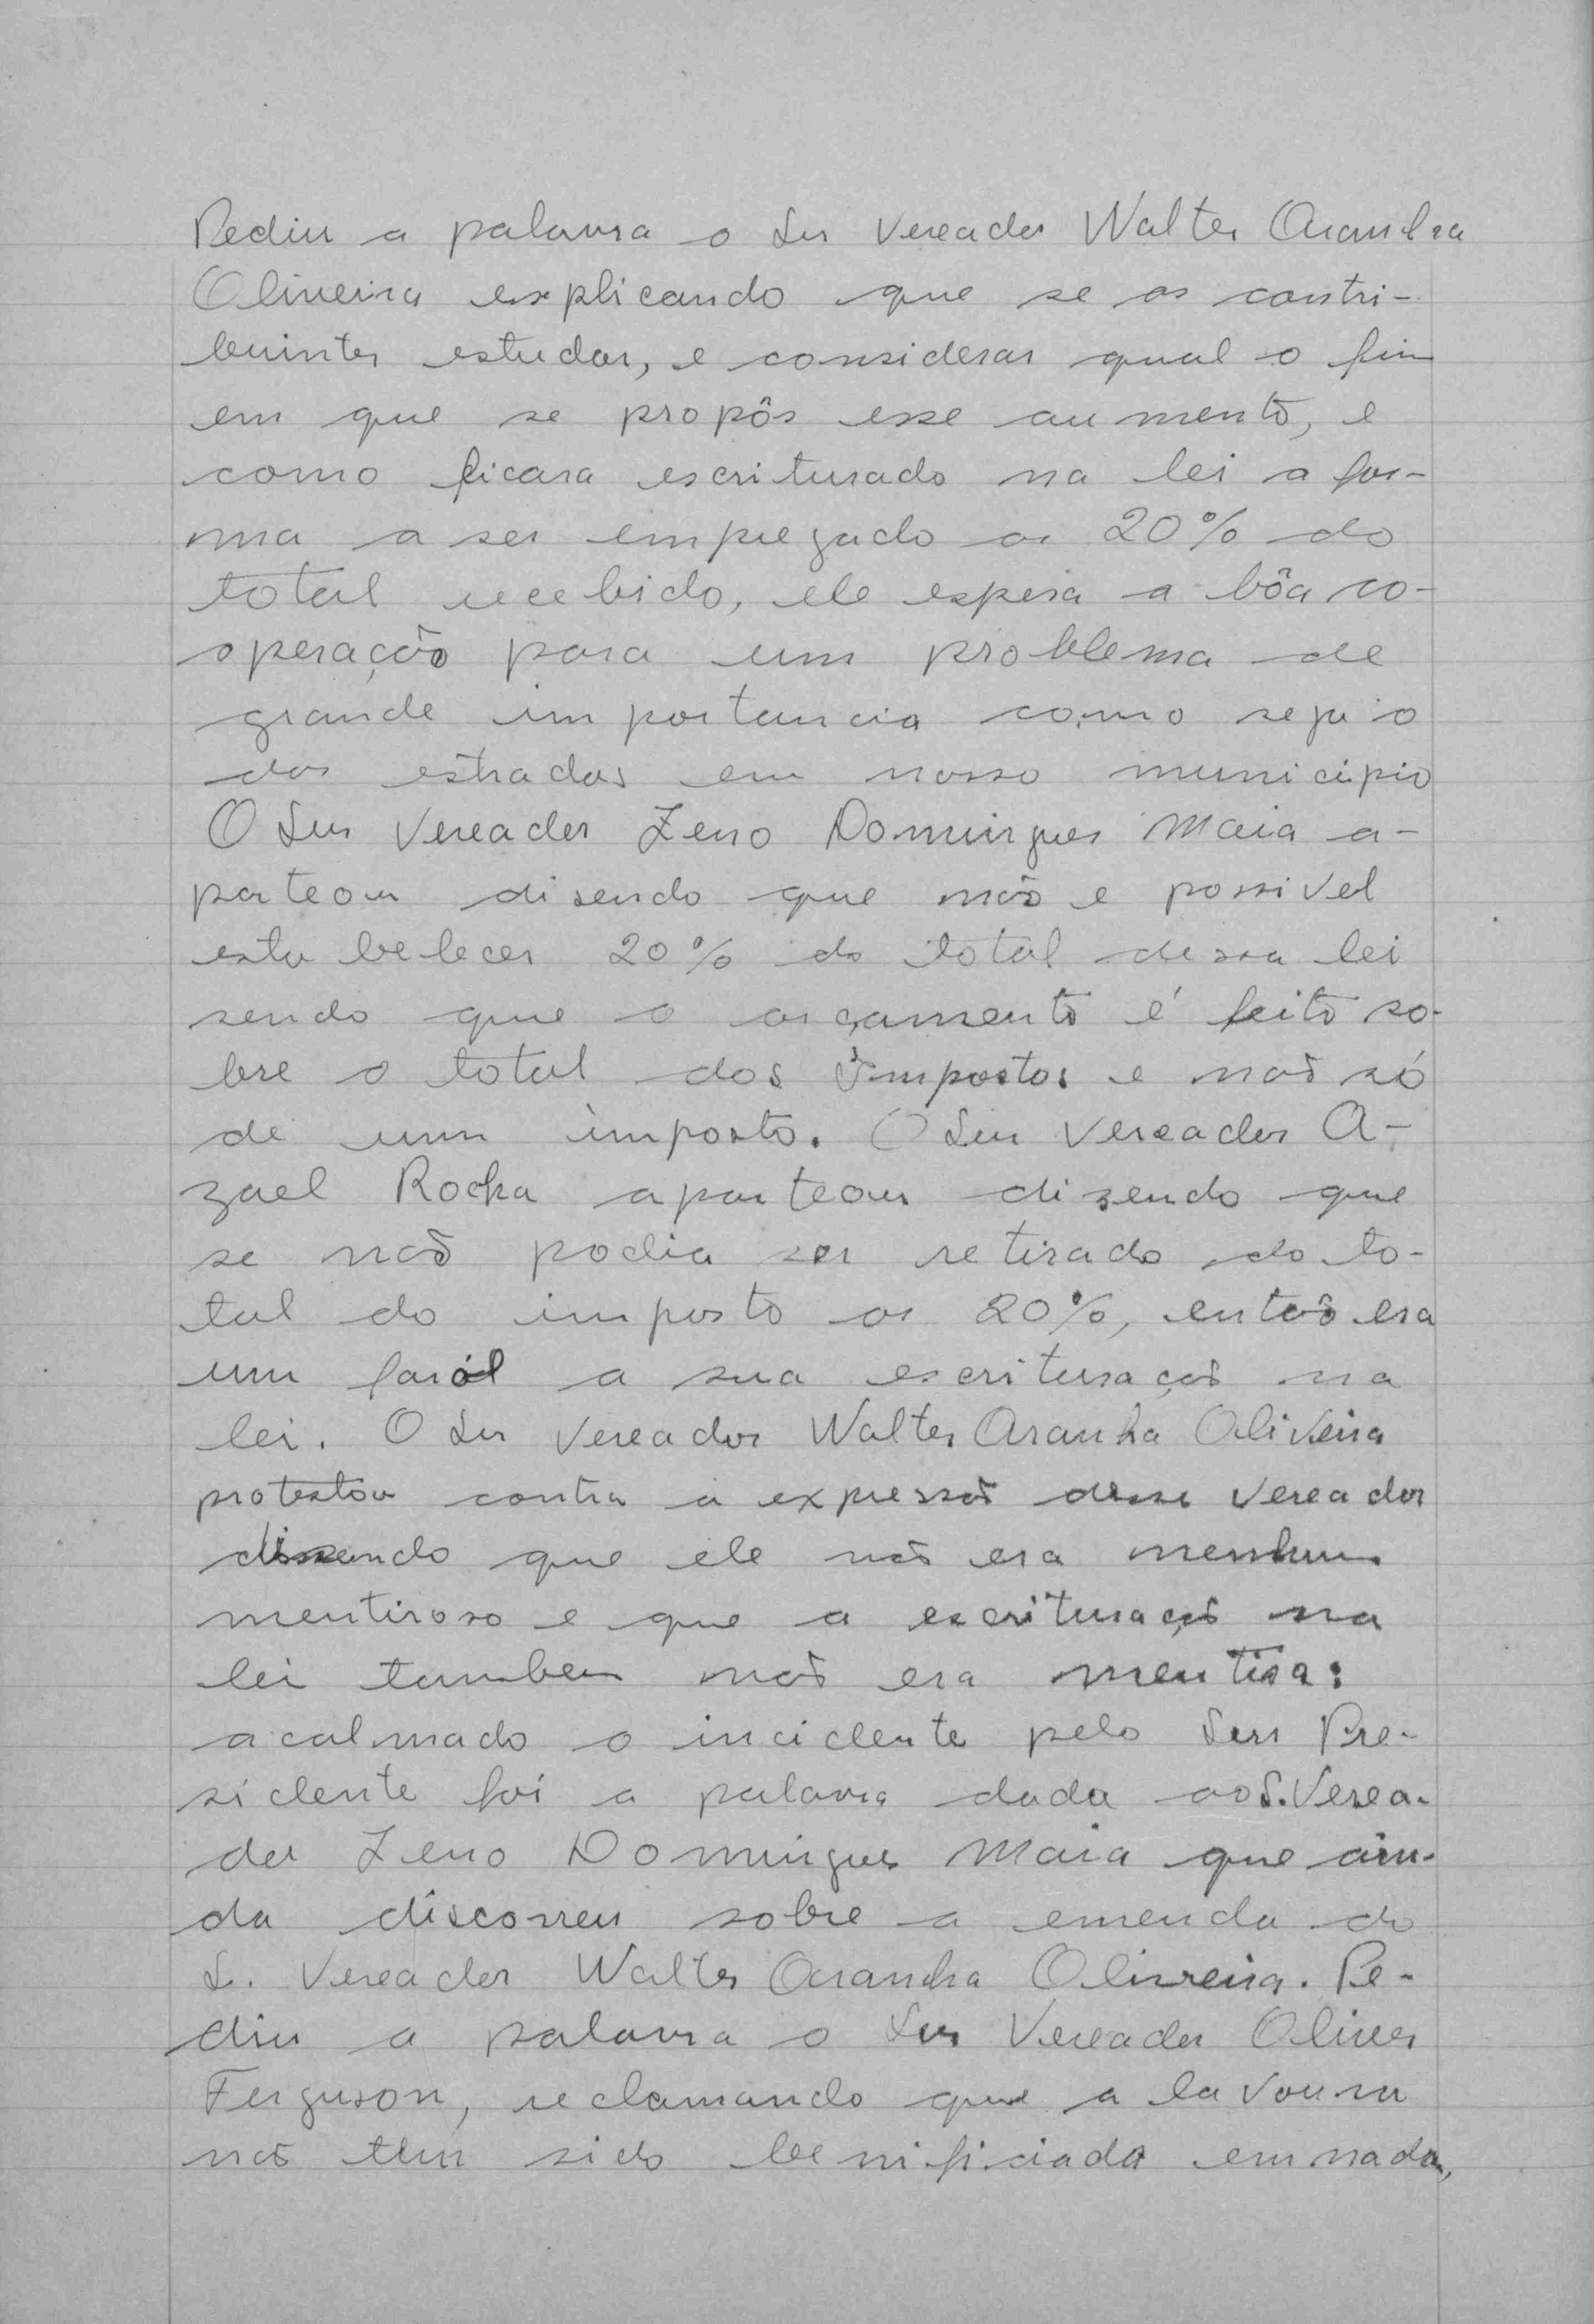 Pediu a palavra o Snr Vereador Walter Aranha
Oliveira explicando que se os contri-
buintes estudar, e considerar qual o fim
em que se propôs esse aumento, e
como ficara escriturado na lei a for-
ma a ser empregado os 20% do
total recebido, ele espera a bôa co-
operação para um problema de
grande importancia como seja o
das estradas em nosso municipio
O Snr Vereador Zeno Domingues Maia a-
parteou disendo que não e possivel
estabelecer 20% do total dessa lei
sendo que o orçamento é feito so-
bre o total dos Impostos e não só
de um imposto. O Snr Vereador A-
zael Rocha aparteou dizendo que
se não podia ser retirado do to-
tal do imposto os 20%, então era
um faról a sua escrituração na
lei. O Snr Vereador Walter Aranha Oliveira
protestou contra a expressão desse Vereador
disendo que ele não era nenhum
mentiroso e que a escrituração na
lei tambem não era mentira:
acalmado o incidente pelo Snr Pre-
sidente foi a palavra dada ao S. Verea-
dor Zeno Domingues Maia que ain-
da discorreu sobre a emenda do
S. Vereador Walter Aranha Oliveira. Pe-
diu a palavra o Snr Vereador Oliver
Ferguson, reclamando que a lavoura
não tem sido benificiada em nada,